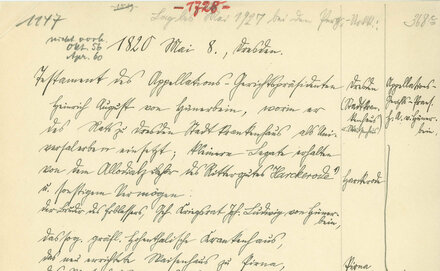 -1728-
1147
Lag bis Mai 1927 bei den
368
nicht vorh.
Okt. 56
Apr. 60
1820 Mai 8., Dresden.
Testament des Appellations-Gerichtspräsidenten
Heinrich August von Hünerbein, worin er
des Rats zu Dresden Stadtkrankenhaus als Uni-
versalerben einsetzt; kleinere Legate erhalten
von dem Allodial des Rittergutes Harckerode
u. sonstigem Vermögen:
der Bruder des Erblassers, Geh. Kriegsrat Joh. Ludwig von Hüner-
bein,
das sog. gräfl. Hohenthalsche Krankenhaus,
das neu errichtete Waisenhaus zu Pirna,
Dresden
Stadtkran-
kenhaus
Harckerode
Pirna
Appellations-
Gerichts-Präs.
H. A. v. Hüner-
bein